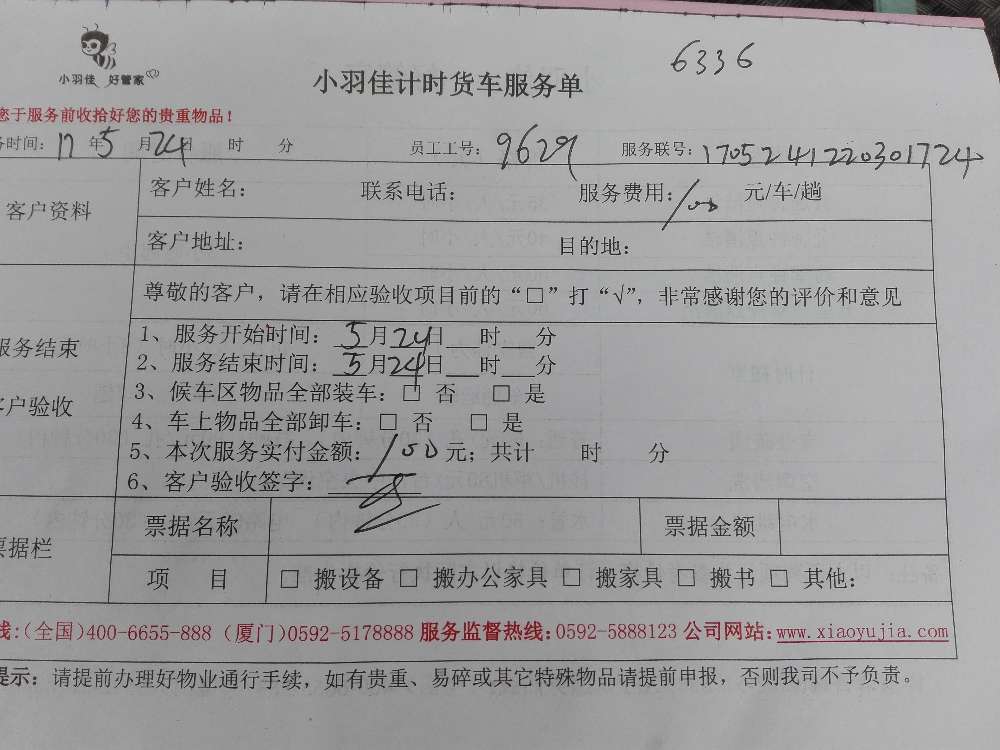 6336
小羽佳 好管家
小羽佳计时货车服务单
您于服务前收拾好您的贵重物品！
务时间：17年5月24日 时 分 员工工号：9629 服务联号：1705241220301724
客户资料
客户姓名： 联系电话： 服务费用：100 元/车/趟
客户地址： 目的地：
尊敬的客户，请在相应验收项目前的“□”打“√”，非常感谢您的评价和意见
服务结束
客户验收
1、服务开始时间：5月24日___时___分
2、服务结束时间：5月24日___时___分
3、候车区物品全部装车：□ 否 □ 是
4、车上物品全部卸车：□ 否 □ 是
5、本次服务实付金额：100元；共计 时 分
6、客户验收签字：
票据栏
票据名称 票据金额
项 目 □ 搬设备 □ 搬办公家具 □ 搬家具 □ 搬书 □ 其他：
线：（全国）400-6655-888（厦门）0592-5178888 服务监督热线：0592-5888123 公司网站：www.xiaoyujia.com
提示：请提前办理好物业通行手续，如有贵重、易碎或其它特殊物品请提前申报，否则我司不予负责。